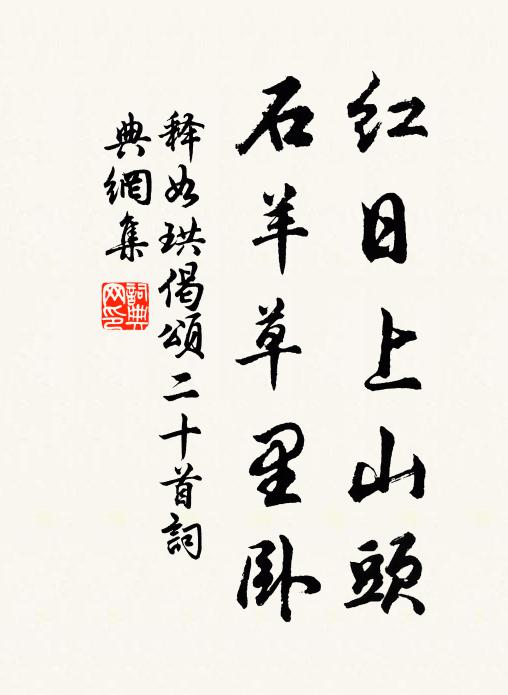 红日上山頭
石羊草里卧
释如珙偈頌二十首詞
典網集
詞典网印